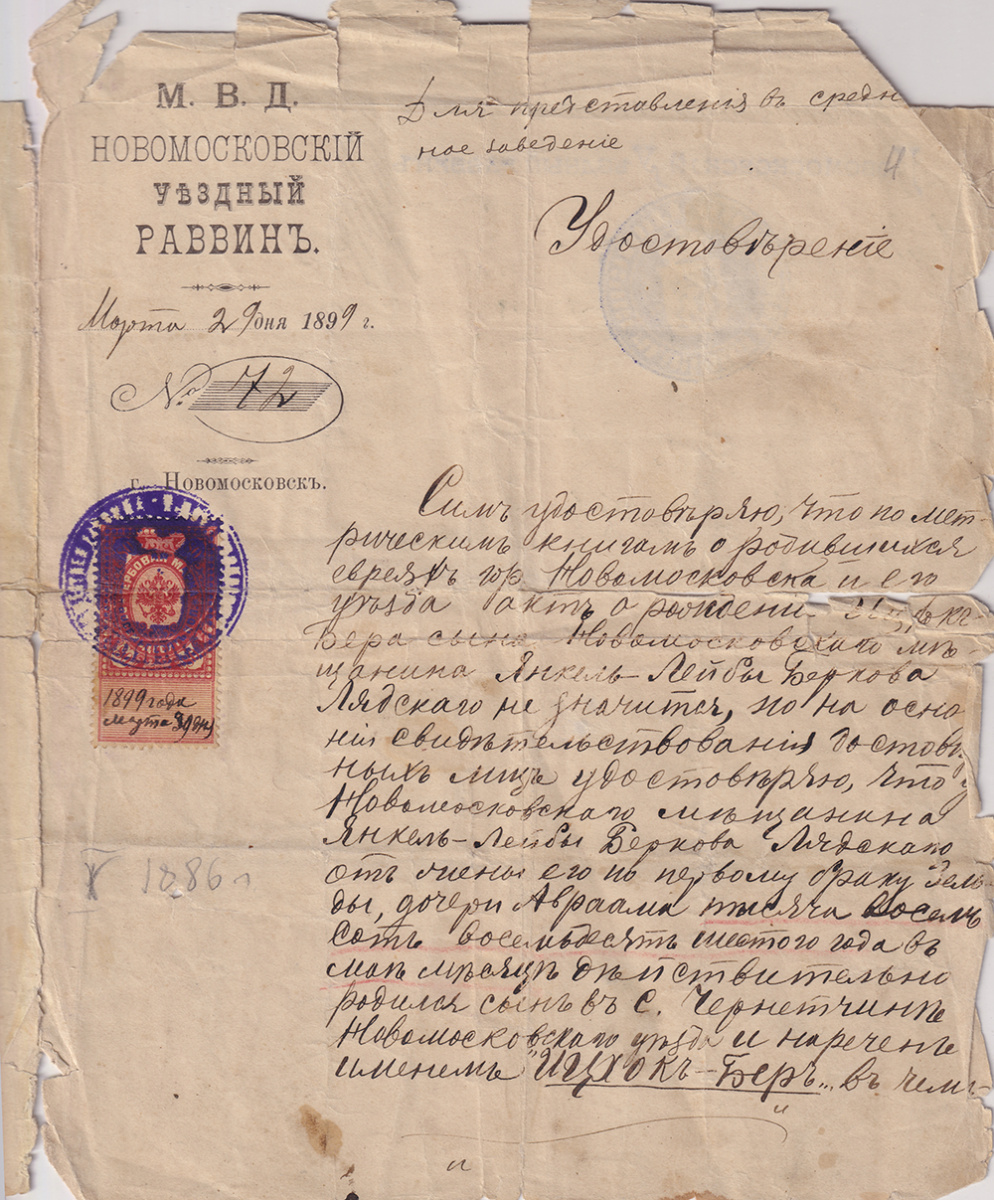 М. В. Д.
НОВОМОСКОВСКІЙ
УѢЗДНЫЙ
РАВВИНЪ.
Марта 29 дня 1899 г.
№ 72
г. Новомосковскъ.
Для представленія въ средн
ное заведеніе
4
Удостовѣреніе
ЕРБОВАЯ М.
1899 года
Марта 29 дня
1886 г
Симъ удостовѣряю, что по мет-
рическимъ книгамъ о родившихся
евреяхъ гор. Новомосковска и его
уѣзда актъ о рожденіи
Бера сына Новомосковскаго мѣ-
щанина Янкель-Лейбы Беркова
Лядскаго не значится, но на осно
нія свидѣтельствованія достовѣ
ныхъ лицъ удостовѣряю, что у
Новомосковскаго мѣщанина
Янкель-Лейбы Беркова Лядскаго
отъ жены его по первому браку Зель-
ды, дочери Авраама тысяча восемь
сотъ восемьдесятъ шестого года въ
маѣ мѣсяцѣ дѣйствительно
родился сынъ въ с. Чернетчинѣ
Новомосковскаго уѣзда и нареченъ
именемъ "Ицхокъ-Беръ" въ чемъ-